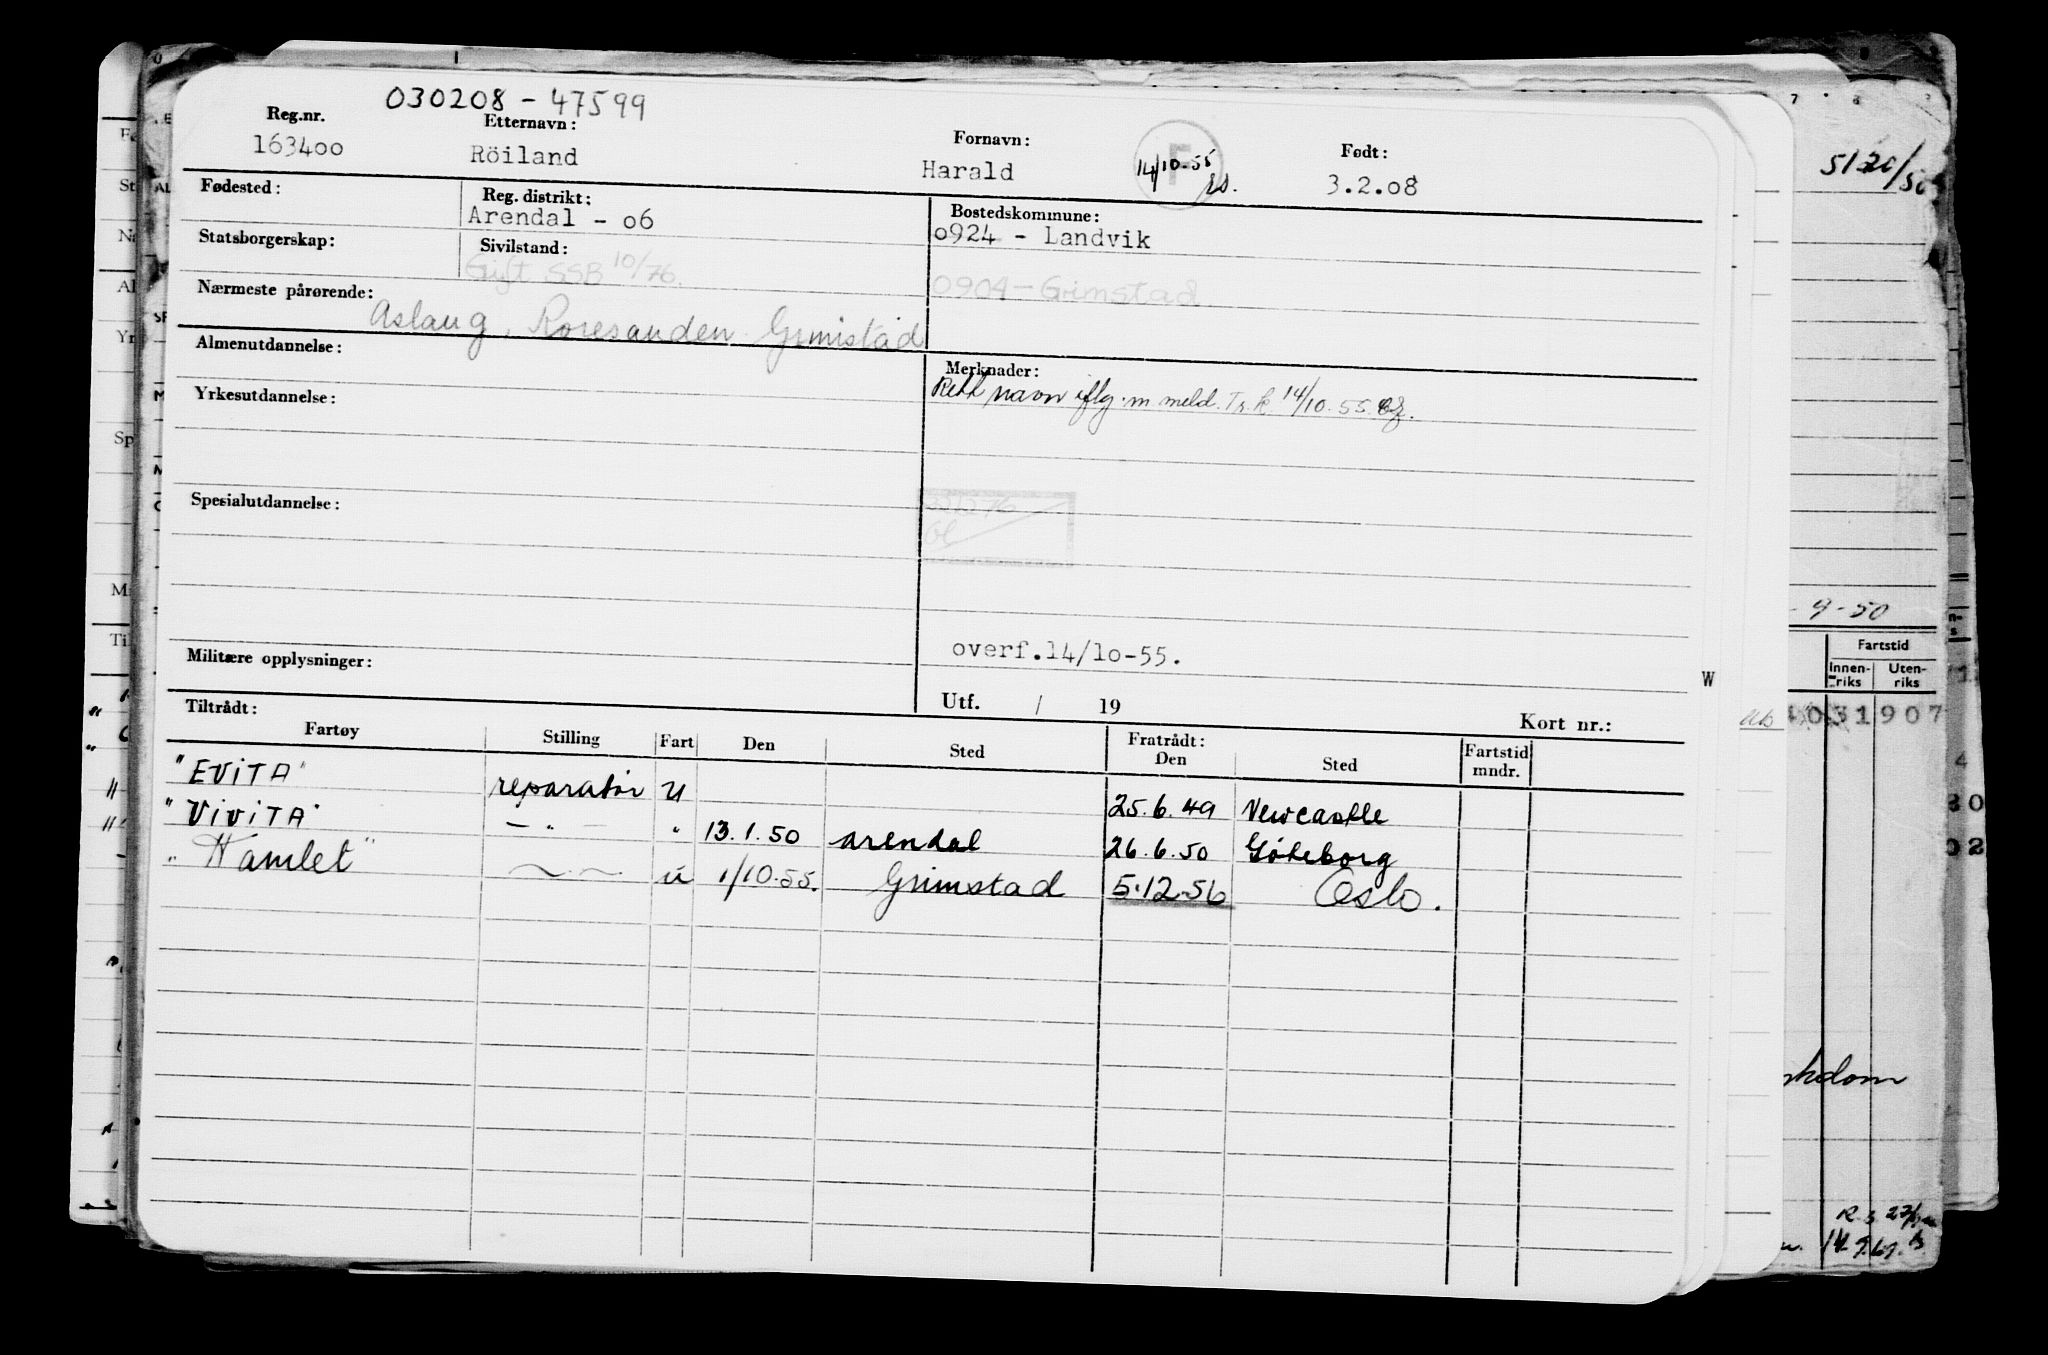 030208 - 47599
Reg.nr. Etternavn: Fornavn: Født:
163400 Röiland Harald 14/10-55 3.2.08
F
Fødested: Reg. distrikt: Bostedskommune:
Arendal - 06 0924 - Landvik
Statsborgerskap: Sivilstand:
Gift SSB 10/76. 0904 - Grimstad
Nærmeste pårørende:
Aslaug, Roresanden Grimstad
Almenutdannelse: Merknader:
Rett navn iflg. m meld. Tr.k. 14/10.55.
Yrkesutdannelse:
Spesialutdannelse:
overf.14/10-55.
Militære opplysninger:
W
Utf. / 19 Kort nr.:
Tiltrådt: Fratrådt:
Fartøy Stilling Fart Den Sted Den Sted Fartstid mndr.
"EViTA" reparatör U 25.6.49 Newcastle
"ViViTA" — " — " 13.1.50 Arendal 26.6.50 Göteborg
"Hamlet" u 1/10.55. Grimstad 5.12.56 Oslo.
- 9 - 50
Fartstid
Innen-riks Uten-riks